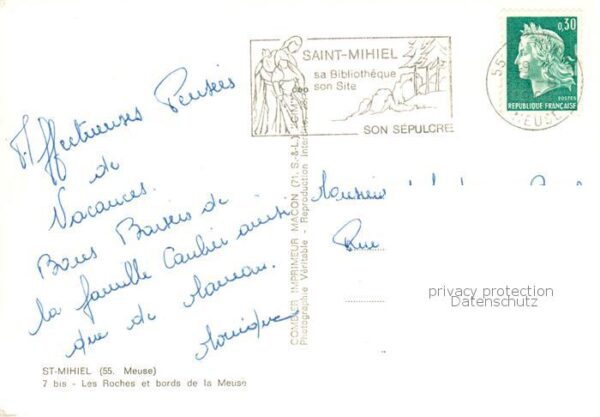 SAINT-MIHIEL
sa Bibliothèque
son Site
SON SÉPULCRE
55
MEUSE
0,30
POSTES
RÉPUBLIQUE FRANÇAISE
Affectueuses Pensées
de
Vacances.
Bons Baisers de
la famille ainsi
que de Maman.
Monique
COMBIER IMPRIMEUR MACON (71. S.-&-L.)
Photographie Véritable - Reproduction
Monsieur
Rue
privacy protection
Datenschutz
ST-MIHIEL (55. Meuse)
7 bis - Les Roches et bords de la Meuse